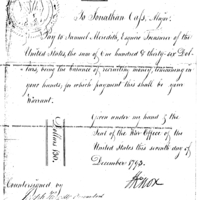 To Jonathan Cass, Major.
Pay to Samuel Meredith, Esquire Treasurer of the
United States, the sum of One hundred & thirty six Dol-
lars, being the balance of recruiting money, remaining in
your hands, for which payment this shall be your
Warrant.
Given under my hand & the
Seal of the War Office of the
United States this ninth day of
December 1793.
Dollars 136.
HKnox
Countersigned by